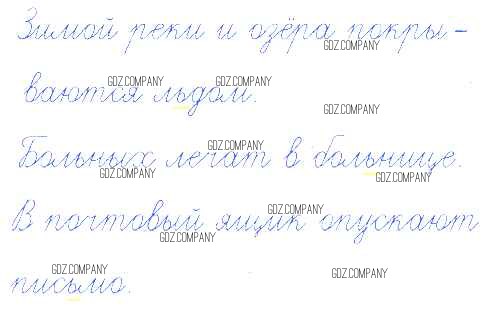 Зимой реки и озёра покры-
GDZ.COMPANY
GDZ.COMPANY GDZ.COMPANY
ваются льдом.
GDZ.COMPANY
GDZ.COMPANY
Больных лечат в больнице.
GDZ.COMPANY GDZ.COMPANY
GDZ.COMPANY
В почтовый ящик опускают
GDZ.COMPANY
GDZ.COMPANY GDZ.COMPANY
письмо.